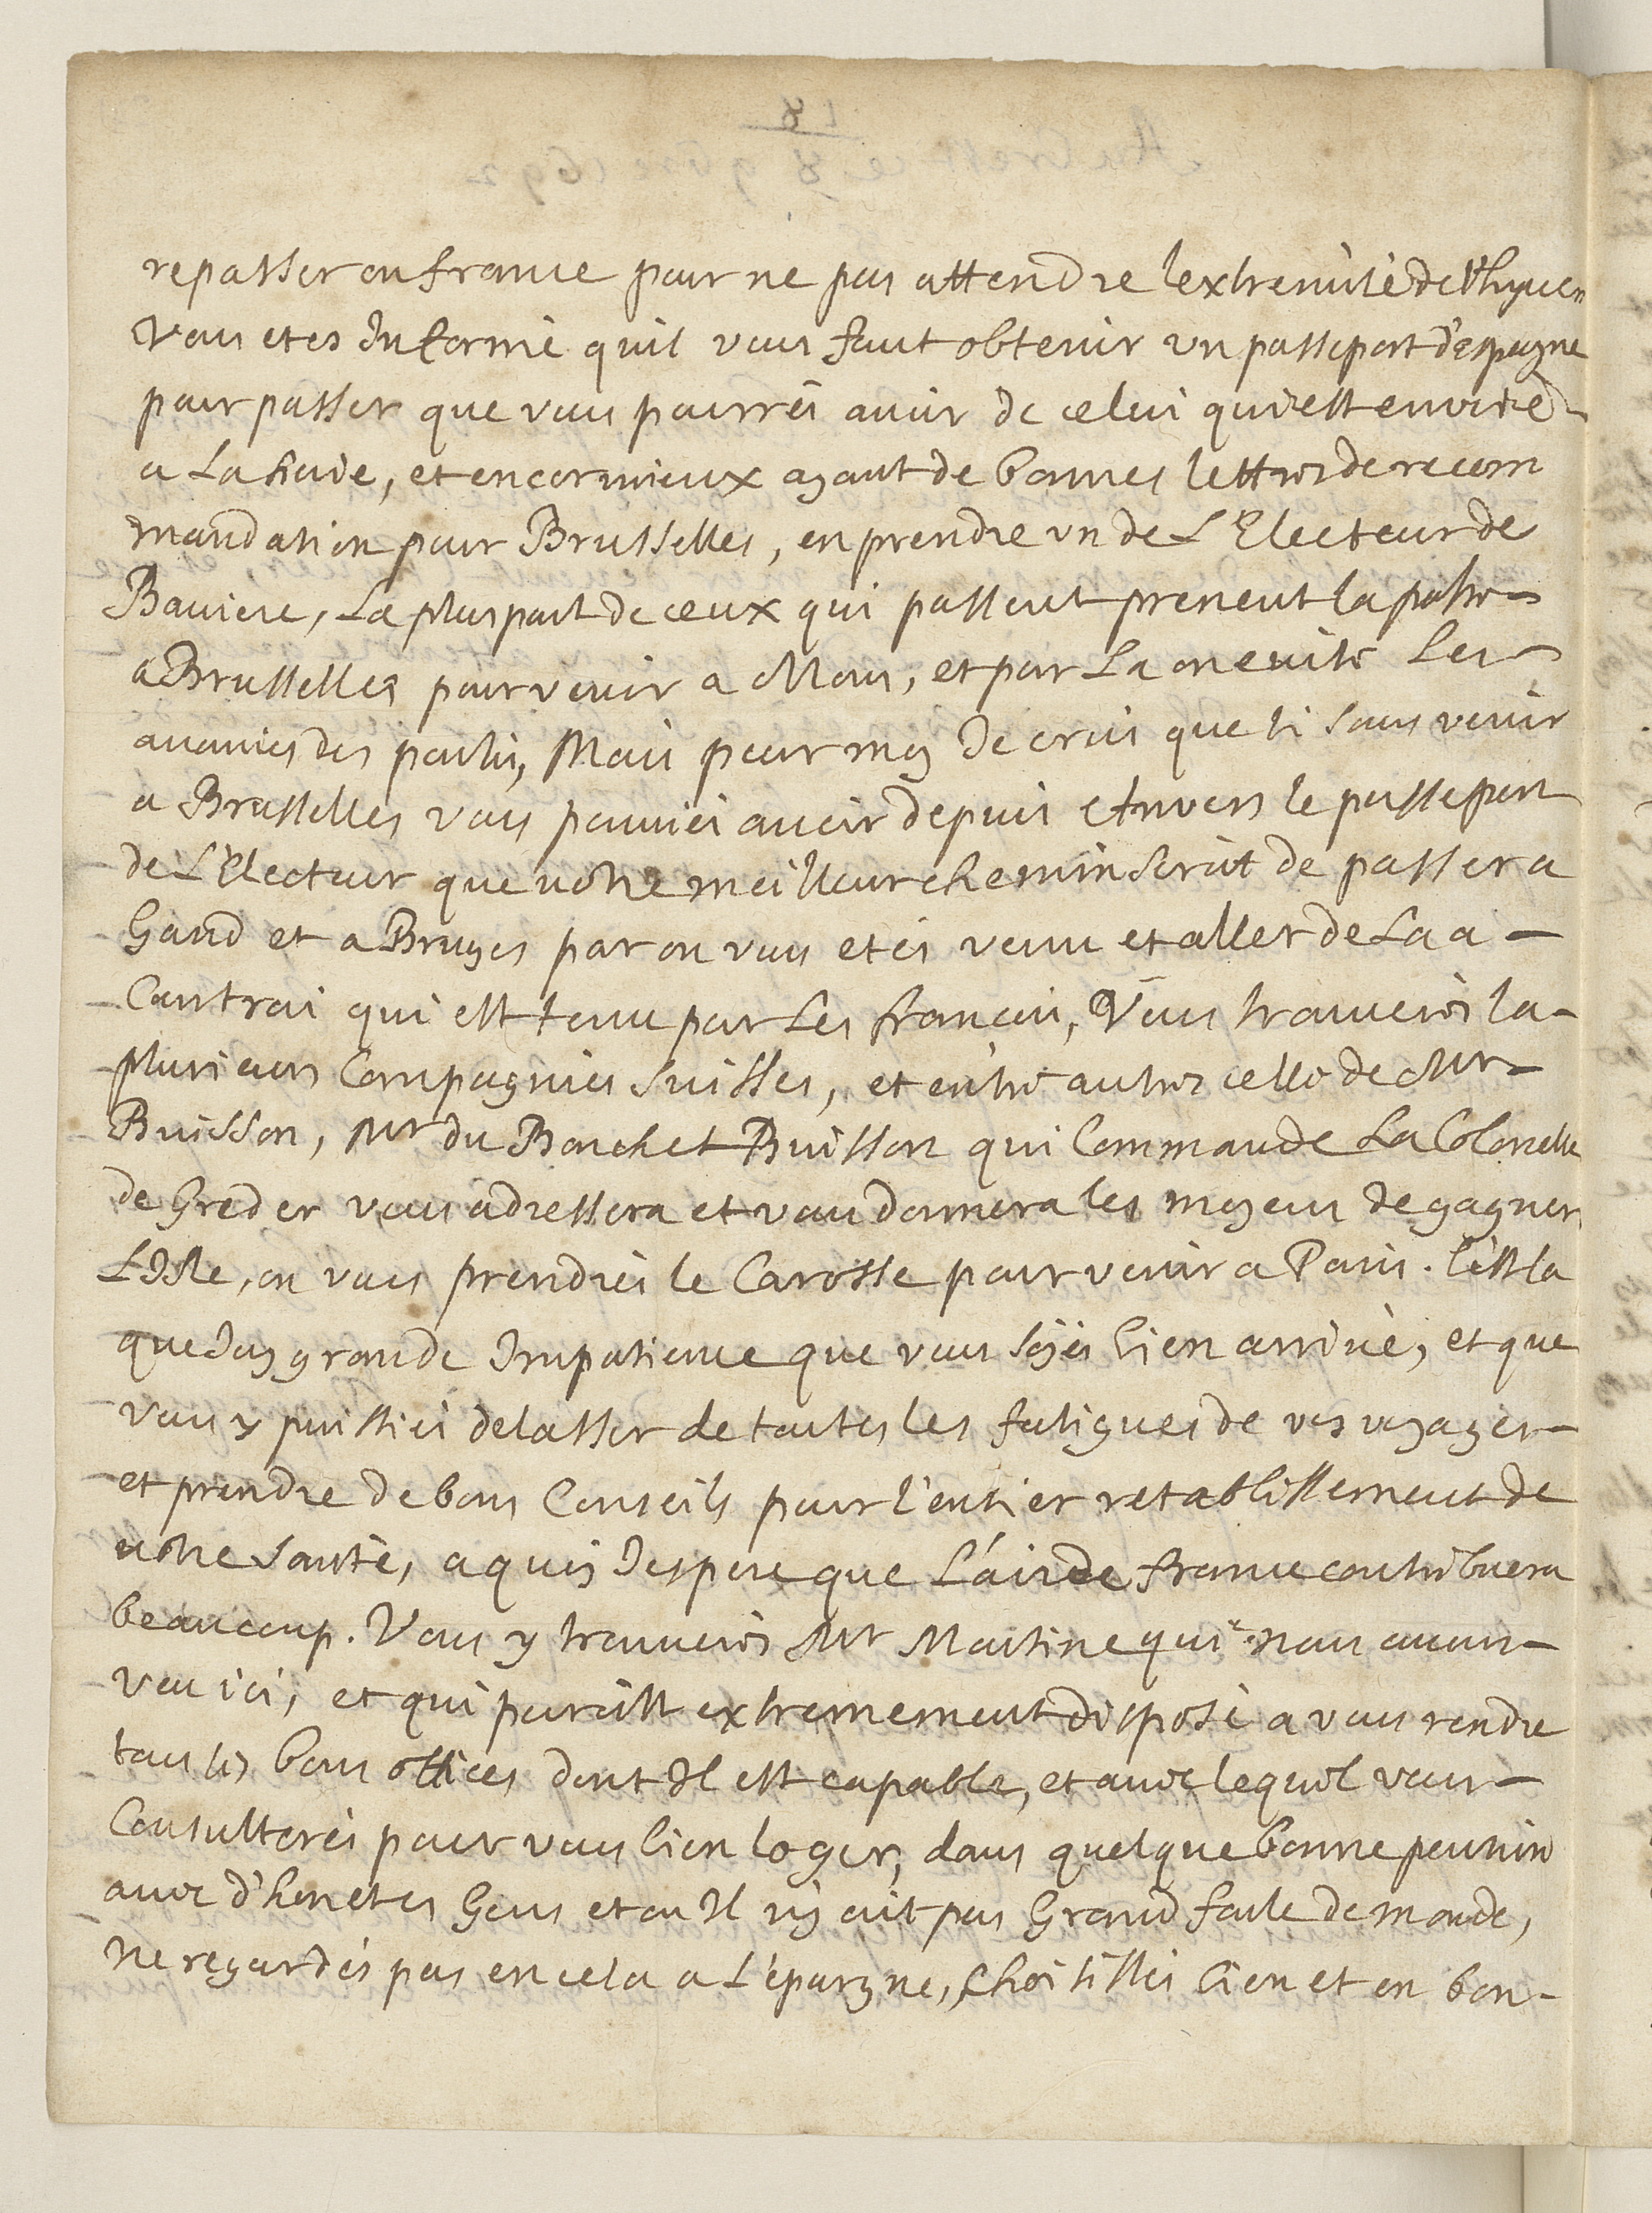 repasser en france pour ne pas attendre lextremité de Lhyuer
Vous etes Informé quil vous faut obtenir vn passeport d'espagne
pour passer que vous pourrés auoir de celui qui est envoié
a La haie, et encor mieux ayant de bonnes lettres de recom
mandation pour Brusselles, en prendre vn de L'Electeur de
Baviere, La pluspart de ceux qui passent prenent la poste
a Brusselles pour venir a Mons, et par La on evite Les
avanies des partis, Mais pour moy Je crois que si sans venir
a Brusselles vous pouviés avoir depuis Anvers le passeport
de L'Electeur que votre meilleur chemin seroit de passer a
Gand et a Bruges par ou vous etes venu et aller de La a
Courtrai qui est tenu par Les francois, Vous trouverés la
plusieurs Compagnies Suisses, et entre autres celle de Mr
Buisson, Mr du Bouchet Buisson qui Commande La Colonelle
de Greder vous adressera et vous donnera les moyens de gagner
L'Isle, ou vous prendrés le Carosse pour venir a Paris. C'est la
que Jay grande Impatience que vous soyés bien arrivé, et que
vous y puissiés delasser de toutes les fatigues de vos voyages
et prendre de bons Conseils pour l'entier retablissement de
votre santé, a quoy Jespere que L'air de france contribuera
beaucoup. Vous y trouverés Mr Martine que nous avons
veu ici, et qui paroist extremement disposé a vous rendre
tous les bons offices dont Il est capable, et avec lequel vous
Consulterés pour vous bien loger, dans quelque bonne pension
avec d'honetes Gens et ou Il n'y ait pas Grand foule de monde,
Ne regardés pas en cela a L'epargne, Choisissés bien et en bon